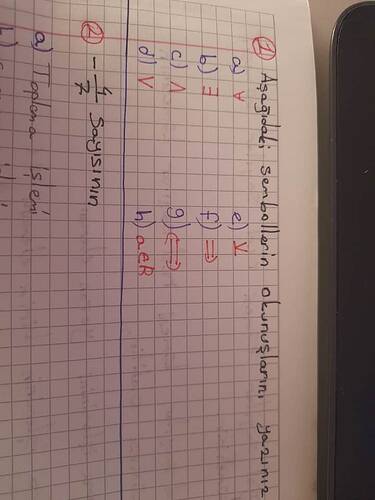 1) Aşağıdaki sembollerin okunuşlarını yazınız
a) ∀ e) ⊻
b) ∃ f) ⇒
c) ∧ g) ⇔
d) ∨ h) a∈B
2) -4/7 sayısının
a) Toplama işlemi